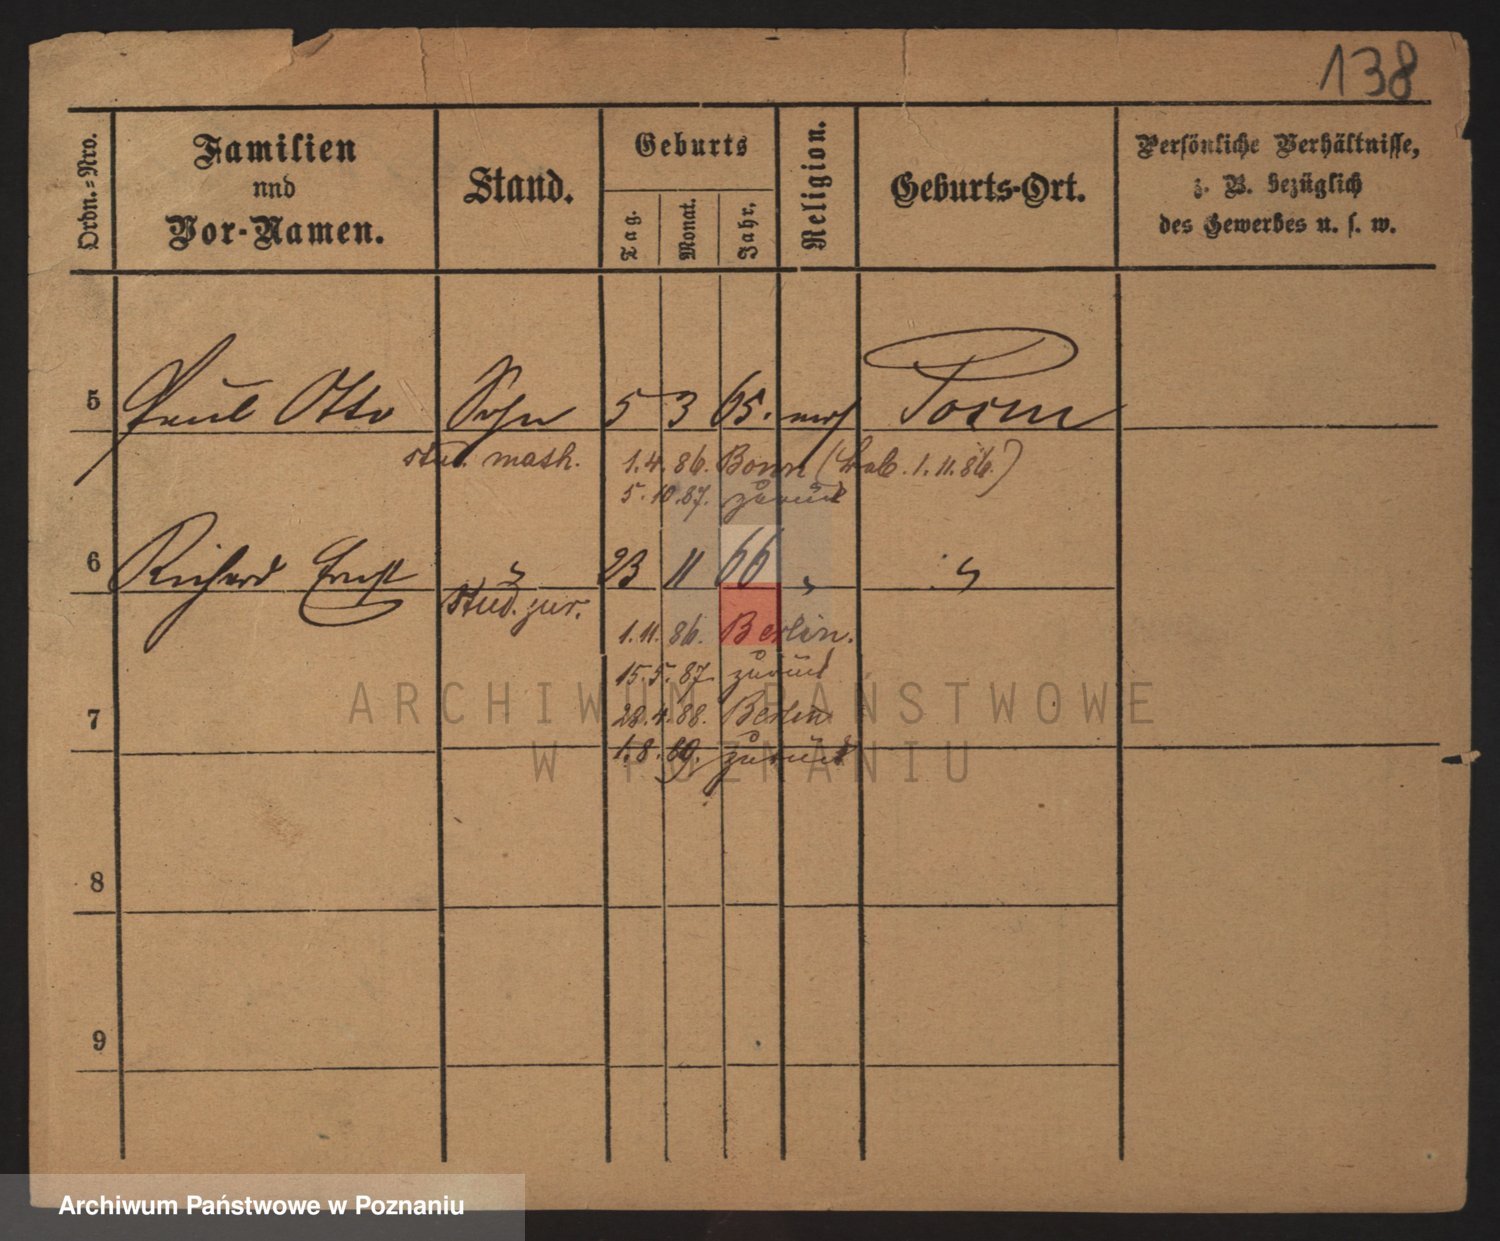 138
Ordn.-Nro.
Familien
und
Vor-Namen.
Stand.
Geburts
Tag.
Monat.
Jahr.
Religion.
Geburts-Ort.
Persönliche Verhältnisse,
z. B. bezüglich
des Gewerbes u. s. w.
5 Paul Otto Sohn 5 3 65. Posen
stud. math. 1.4.86. Bonn ( 1.11.86.)
5.10.87. zurück
6 Richard Ernst " 23 11 66 " "
stud. jur.
1.11.86. Berlin.
15.5.87. zurück
7 28.4.88. Berlin
1.8. zurück
8
9
ARCHIWUM PAŃSTWOWE
W POZNANIU
Archiwum Państwowe w Poznaniu